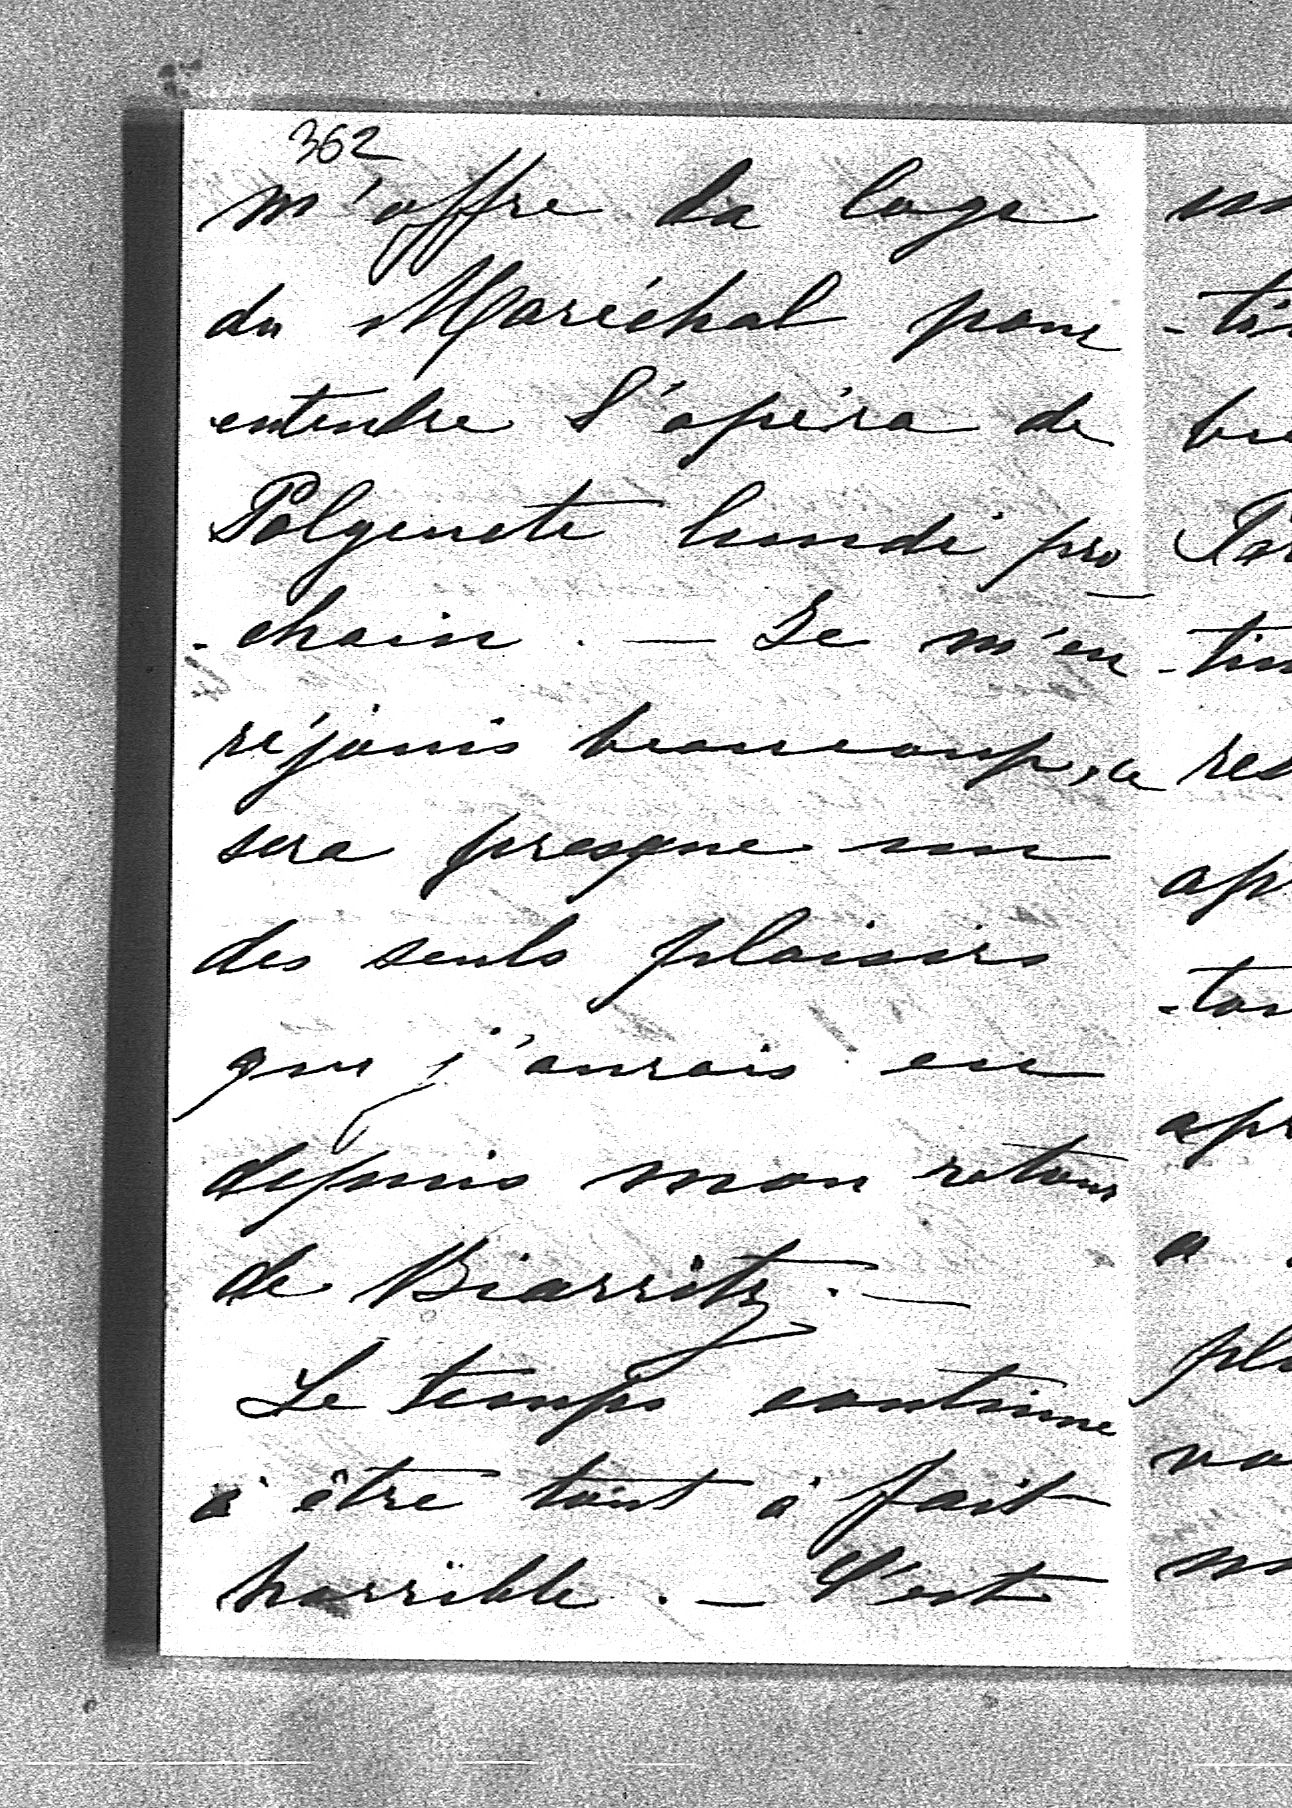 362
m'offre la loge
du Maréchal pour
entendre l'opéra de
Polyeucte lundi pro
-chain. — Je m'en
réjouis beaucoup, ce
sera presque un
des seuls plaisirs
que j'aurais eu
depuis mon retour
de Biarritz. —
Le temps continue
à être tout à fait
horrible. — C'est